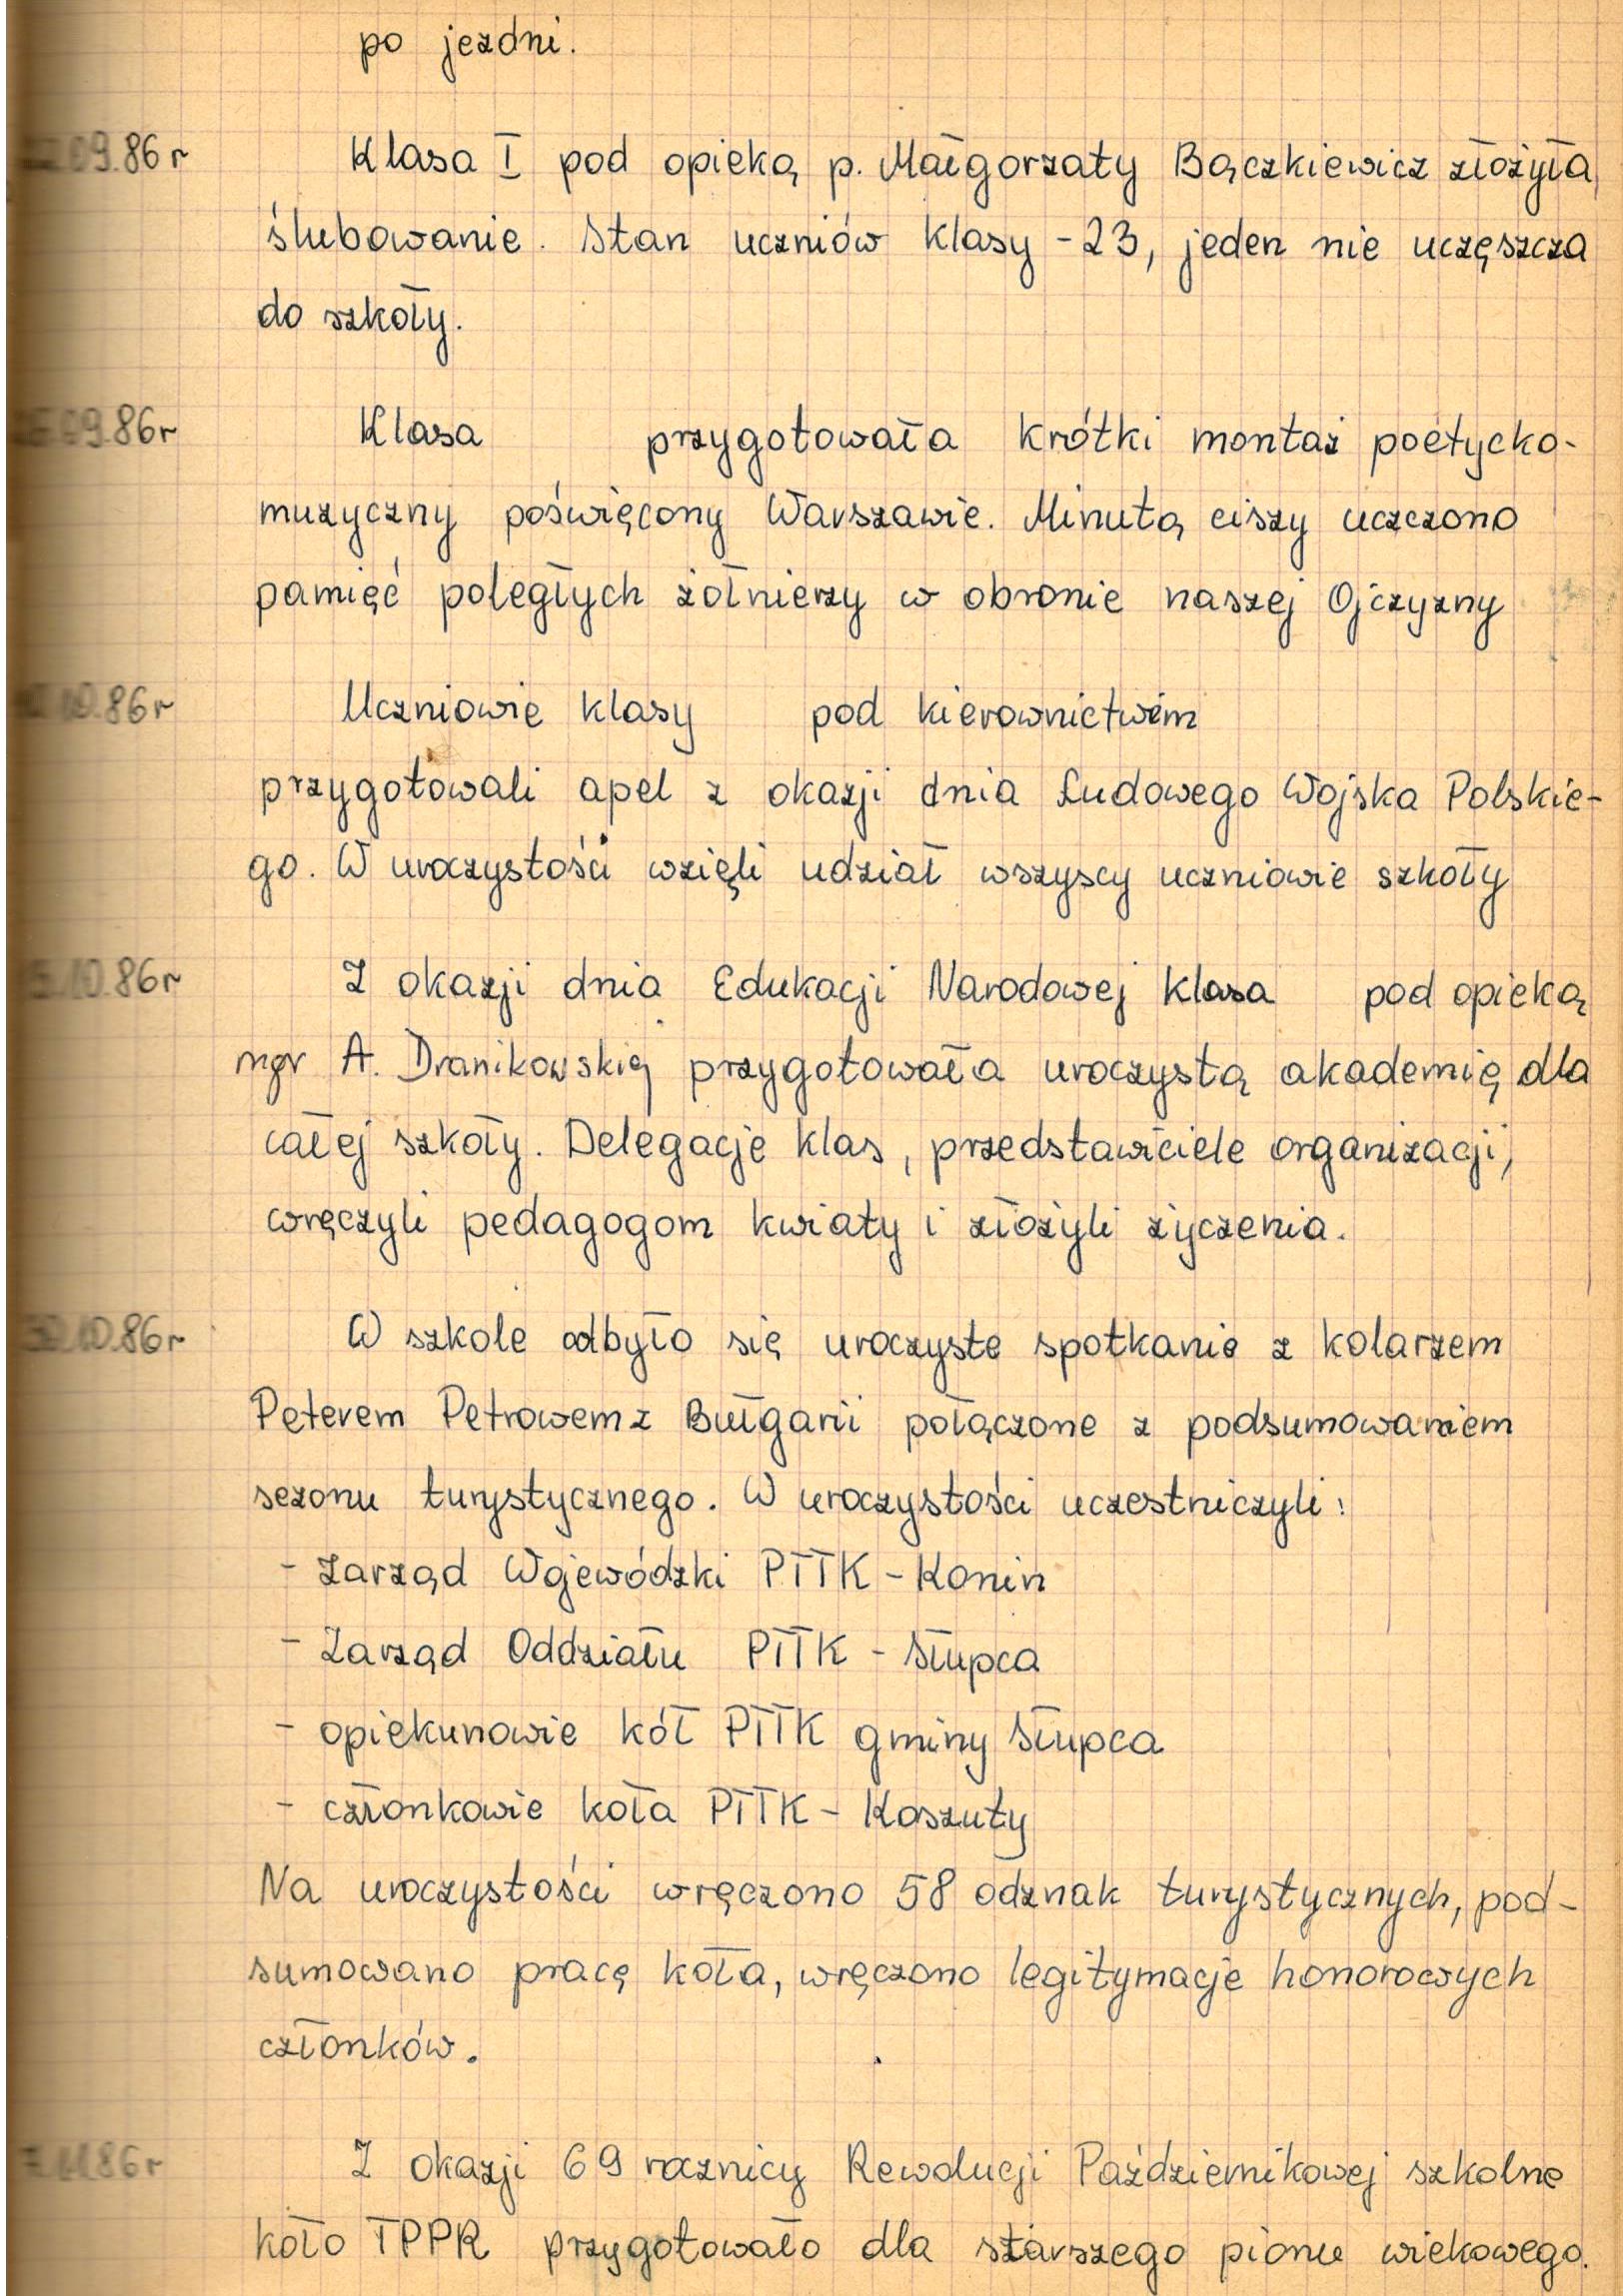 po jezdni.
09.86r Klasa I pod opieką p. Małgorzaty Bączkiewicz złożyła
ślubowanie. Stan uczniów klasy -23, jeden nie uczęszcza
do szkoły.
09.86r Klasa przygotowała krótki montaż poetycko-
muzyczny poświęcony Warszawie. Minutą ciszy uczczono
pamięć poległych żołnierzy w obronie naszej Ojczyzny
10.86r Uczniowie klasy pod kierownictwem
przygotowali apel z okazji dnia Ludowego Wojska Polskie-
go. W uroczystości wzięli udział wszyscy uczniowie szkoły
10.86r Z okazji dnia Edukacji Narodowej klasa pod opieką
mgr A. Dranikowskiej przygotowała uroczystą akademię dla
całej szkoły. Delegacje klas, przedstawiciele organizacji,
wręczyli pedagogom kwiaty i złożyli życzenia.
10.86r W szkole odbyło się uroczyste spotkanie z kolarzem
Peterem Petrowem z Bułgarii połączone z podsumowaniem
sezonu turystycznego. W uroczystości uczestniczyli:
- Zarząd Wojewódzki PTTK - Konin
- Zarząd Oddziału PTTK - Słupca
- opiekunowie kół PTTK gminy Słupca
- członkowie koła PTTK - Koszuty
Na uroczystości wręczono 58 odznak turystycznych, pod-
sumowano pracę koła, wręczono legitymacje honorowych
członków.
11.86r Z okazji 69 rocznicy Rewolucji Październikowej szkolne
koło TPPR przygotowało dla starszego pionu wiekowego